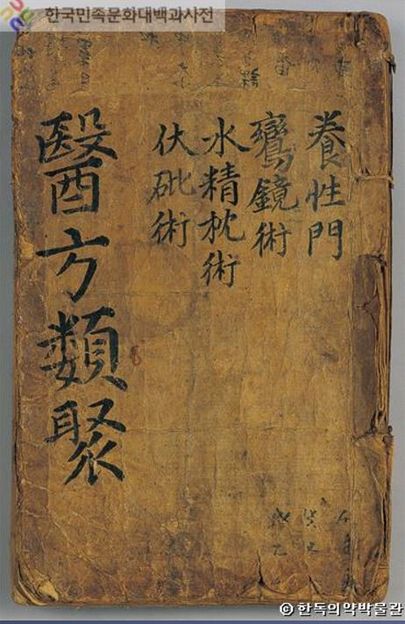 한국민족문화대백과사전
養性門
鸞鏡術
水精枕術
伏砒術
醫方類聚
ⓒ 한독의약박물관